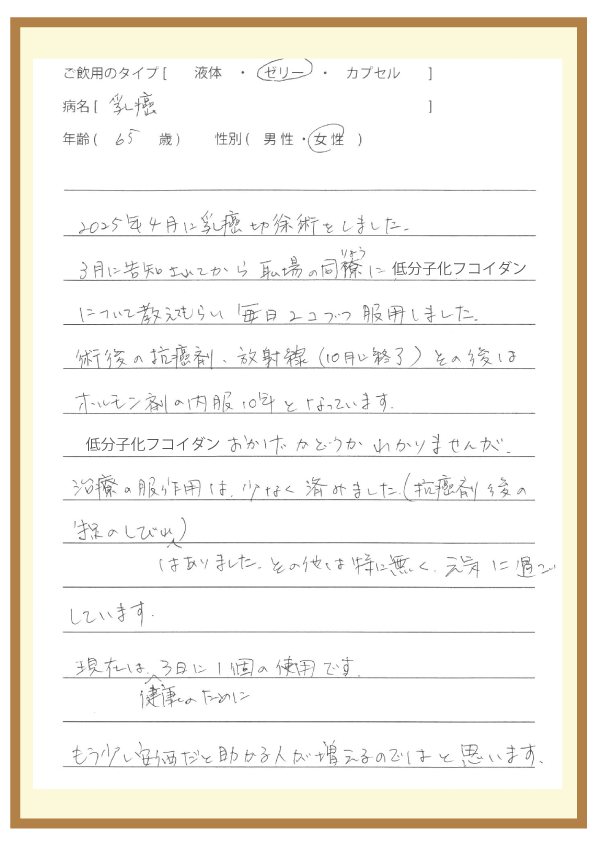 ご飲用のタイプ[ 液体 ・ ゼリー ・ カプセル ]
病名[ 乳癌 ]
年齢( 65 歳) 性別( 男性・女性 )
2025年4月に乳癌切除術をしました。
3月に告知されてから職場の同療に低分子化フコイダン
りょう
について教えてもらい毎日2コづつ服用しました。
術後の抗癌剤、放射線(10月に終了)その後は
ホルモン剤の内服10年となっています。
低分子化フコイダンおかげかどうかわかりませんが、
治療の服作用は、少なく済みました。(抗癌剤後の
手足のしびれ)
はありました。その他は特に無く、元気に過ご
しています。
現在は、3日に1個の使用です。
健康のために
もう少し安価だと助かる人が増えるのではと思います。